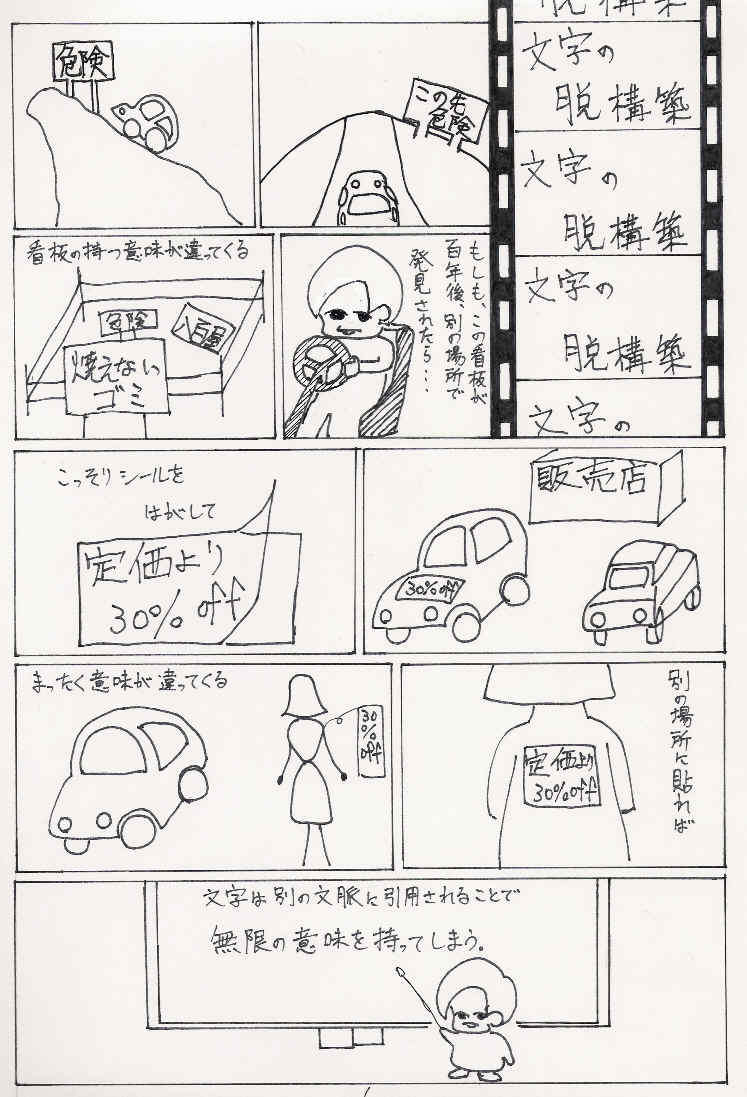 脱構築
文字の
脱構築
文字の
脱構築
文字の
脱構築
文字の
この先
危険
危険
もしも、この看板が
百年後、別の場所で
発見されたら・・・
看板の持つ意味が違ってくる
危険
八百屋
燃えない
ゴミ
販売店
30%off
こっそりシールを
はがして
定価より
30%off
別の場所に貼れば
定価より
30%off
まったく意味が違ってくる
30
%
off
文字は別の文脈に引用されることで
無限の意味を持ってしまう。